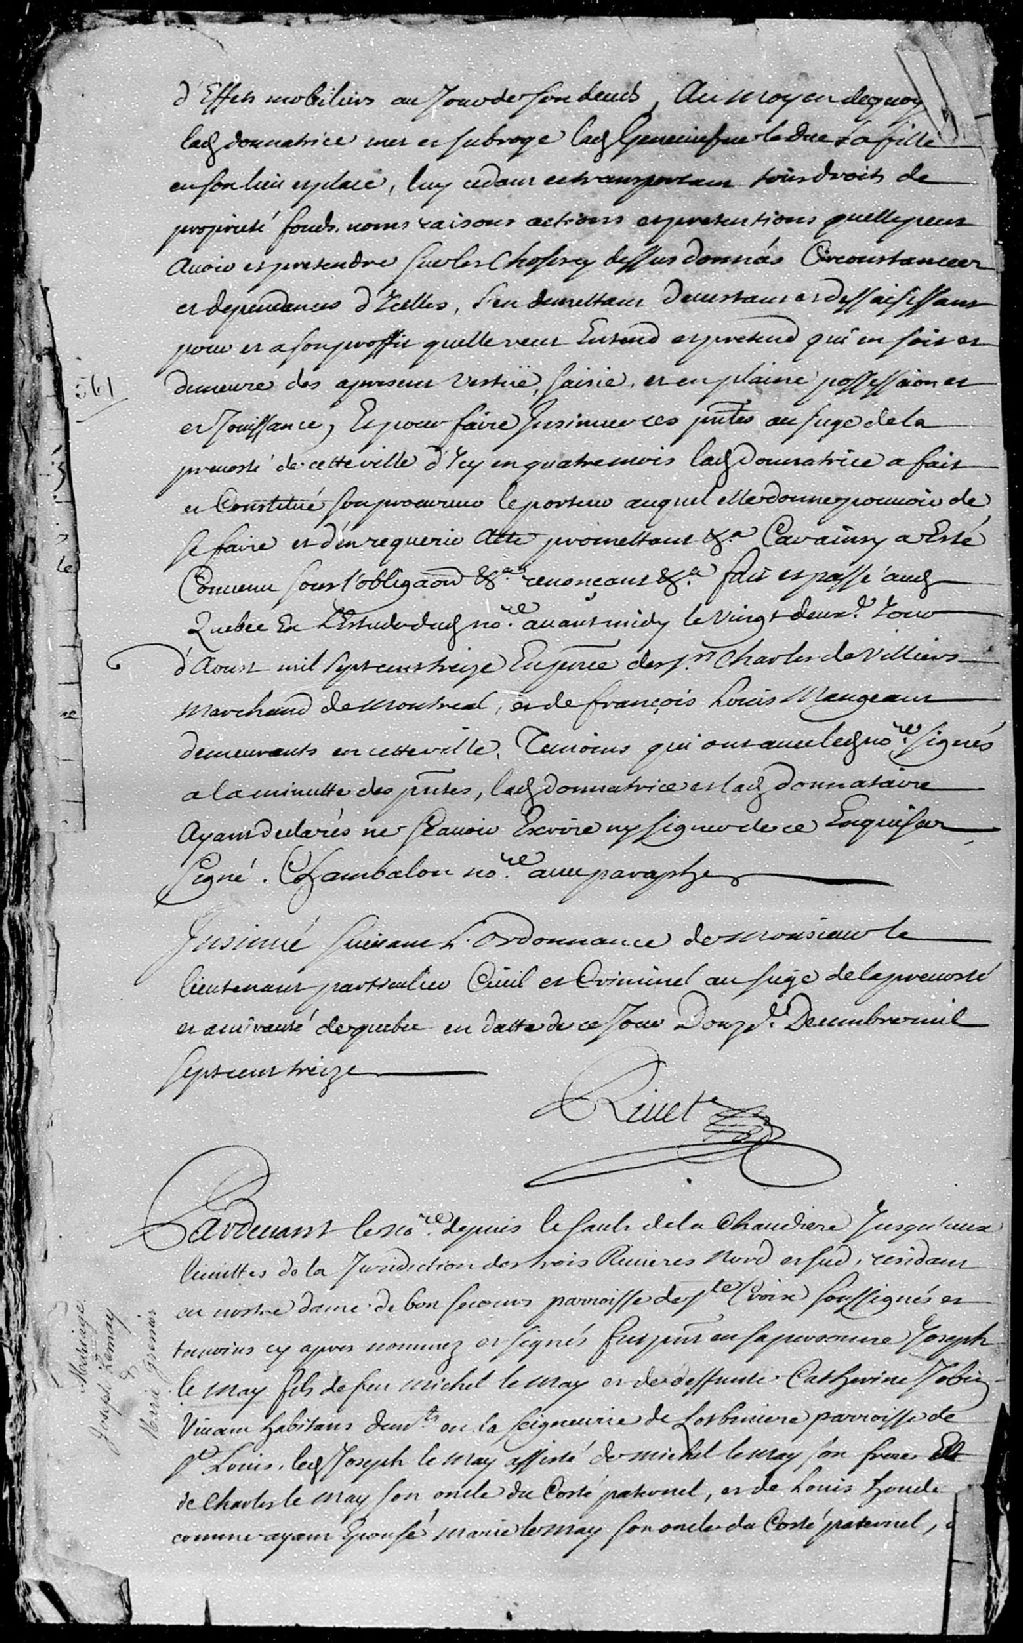 d'Effets mobiliers au Jour de son deceds, Au moyen dequoy
lad donnatrice met et subroge lad Geneviefve le Duc sa fille
en son lieu et place, luy cedant et transportant tous droits de
proprieté fonds, noms raisons actions et pretentions quelle peut
Avoir et pretendre sur les Choses cy dessus données Circonstances
et dependances d'Icelles, s'en demettant devestant et dessaisissant
pour et a son proffit quelle veut Entend et pretend qu'en soit et
demeure des apresent vestüe, saisie, et en plaine possession et
et Jouissance, Et pour faire Insinuer ces pntes au siege de la
prevosté de cette ville d'Icy en quatre mois lad donnatrice a fait
et Constitué son procureur le porteur auquel elle donne pouvoir de
se faire et d'en requerir Acte promettant &a Car ainsy a Esté
Convenu sous l'obligaõn &a renonçant &a fait et passé aud
Quebec En L'Estude dud nore avant midy le vingt deux.e Jour
d'Aoust mil sept cent treize En pnce des srs Charles de Villiers
Marchand de Montreal, et de françois Louis Maugeant
demeurants en cette ville, Temoins qui ont avec led nore signés
a la minutte des pntes, lad donnatrice et lad donnataire
Ayant declarés ne sçavoir Escrire ny signer de ce Enquises
Signé. Chambalon nore avec paraphe
Insinué suivant L'ordonnance de Monsieur le
lieutenant particulier Civil et Criminel au siege de la prevosté
et amirauté de quebec en datte de ce Jour Douze. Decembre mil
sept cent treize
Rivet
Pardevant le nore depuis le sault de la Chaudiere Jusqu'aux
limittes de la Jurisdiction des trois Rivieres Nord et sud, residant
en nostre dame de bon secours parroisse de ste Croix soussignés et
temoins cy apres nommez et signés fut pnt en sa personne Joseph
le may fils de feu michel le may et de deffunte Catherine
Vivant habitans demts en la seigneurie de Lotbiniere parroisse de
st Louis, led Joseph le may assisté de michel le may son frere Et
de Charles le may son oncle du Costé paternel, et de Louis houde
comme ayant Epousé marie le may son oncle du Costé paternel,
561
Mariage
Joseph Lemay
&
Marie Grenier